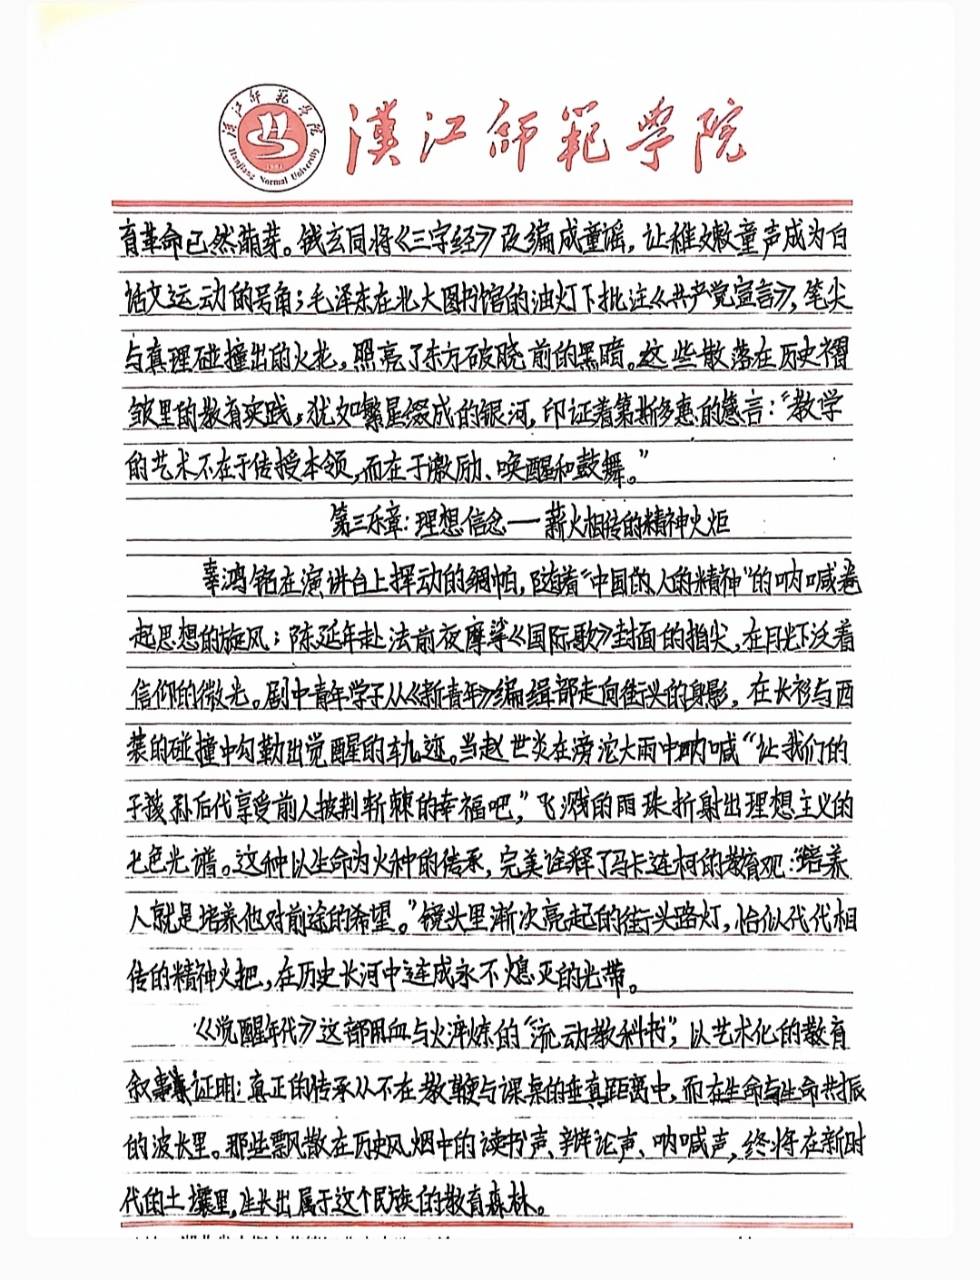 漢江師範學院
漢江師範學院
Hanjiang Normal University
育革命已然萌芽。钱玄同将《三字经》改编成童谣，让稚嫩童声成为白
话文运动的号角；毛泽东在北大图书馆的油灯下批注《共产党宣言》，笔尖
与真理碰撞出的火花，照亮了东方破晓前的黑暗。这些散落在历史褶
皱里的教育实践，犹如繁星缀成的银河，印证着第斯多惠的箴言：“教学
的艺术不在于传授本领，而在于激励、唤醒和鼓舞。”
第三乐章：理想信念——薪火相传的精神火炬
辜鸿铭在演讲台上挥动的绸帕，随着“中国的人的精神”的呐喊卷
起思想的旋风；陈延年赴法前夜摩挲《国际歌》封面的指尖，在月光下泛着
信仰的微光。剧中青年学子从《新青年》编缉部走向街头的身影，在长衫与西
装的碰撞中勾勒出觉醒的轨迹。当赵世炎在滂沱大雨中呐喊“让我们的
子孩孙后代享受前人披荆斩棘的幸福吧，”飞溅的雨珠折射出理想主义的
七色光谱。这种以生命为火种的传承，完美诠释了马卡连柯的教育观：“培养
人就是培养他对前途的希望。”镜头里渐次亮起的街头路灯，恰似代代相
传的精神火把，在历史长河中连成永不熄灭的光带。
《觉醒年代》这部用血与火淬炼的“流动教科书”，以艺术化的教育
叙事证明：真正的传承从不在教鞭与课桌的垂直距离中，而在生命与生命共振
的波长里。那些飘散在历史风烟中的读书声、辩论声、呐喊声，终将在新时
代的土壤里，生长出属于这个民族的教育森林。